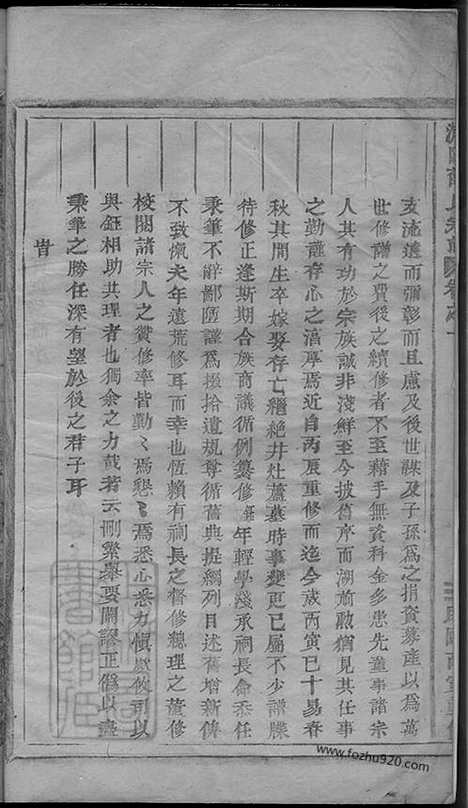 支流遠而彌彰而且慮及後世謀及子孫爲之捐資募產以爲萬
世修譜之費後之續修者不至藉手無資科金多患先進事諸宗
人其有功於宗族誠非淺鮮至今披舊序而溯前猷猶見其任事
之勤謹存心之渾厚焉近自丙辰重修而迄今歲丙寅已十易春
秋其間生卒嫁娶存亡繼絶井杜蘆墓時事變更已屬不少譜牒
待修正逢斯期合族商議循例纂修鈺年輕學淺承祠長命忝任
秉筆不辭鄙陋謹爲掇拾遺規尊循舊典提綱列目述舊增新俾
不致慨夫年遠荒修耳而幸也恆賴有祠長之督修總理之董修
校閱諸宗人之贊修率皆勤〻焉懇〻焉悉心悉力愼厥攸司以
與鈺相助共理者也獨余之力哉若云刪繁舉要闢謬正僞以盡
秉筆之勝任深有望於後之君子耳
旹
卷之一
www.fozhu920.com